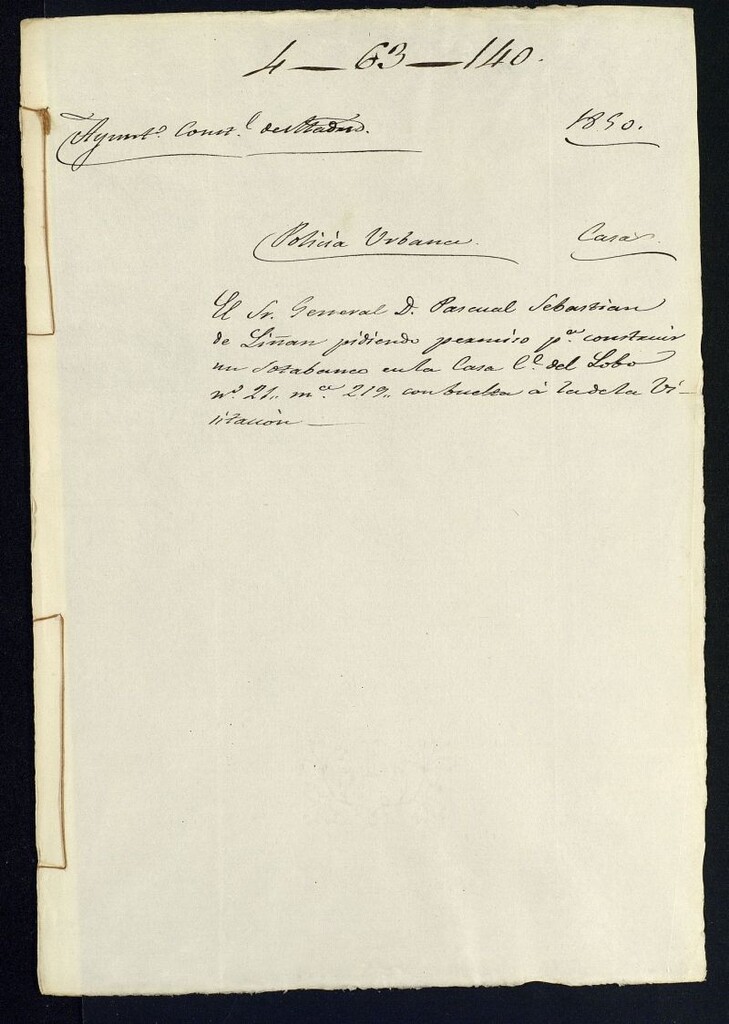 4 — 63 — 140.
Ayunt.º Const.l de Madrid.
1850.
Policía Urbana.
Casas.
El Sr. General D. Pascual Sebastian
de Liñan pidiendo permiso p.ª construir
un Sotabanco en la Casa C.e del Lobo
n.º 21,, m.a 219,, con buelta á la de la Vi-
sitacion —